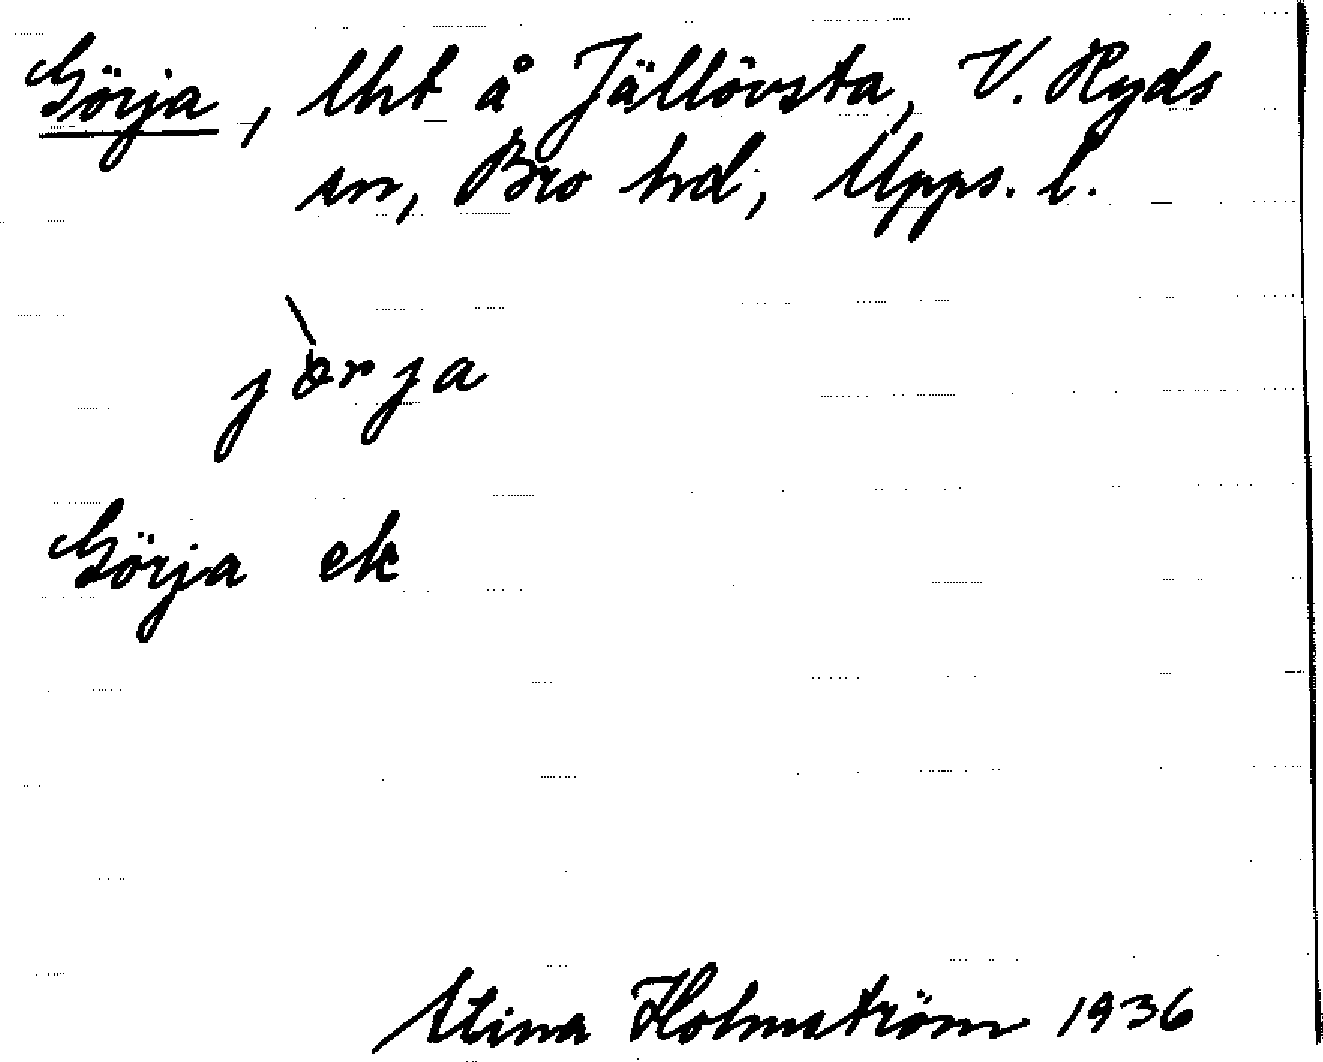 Görja, lht å Jällövsta, V. Ryds
sn, Bro hd, Upps. l.
jò̀rja
Görja ek
Stina Holmström 1936